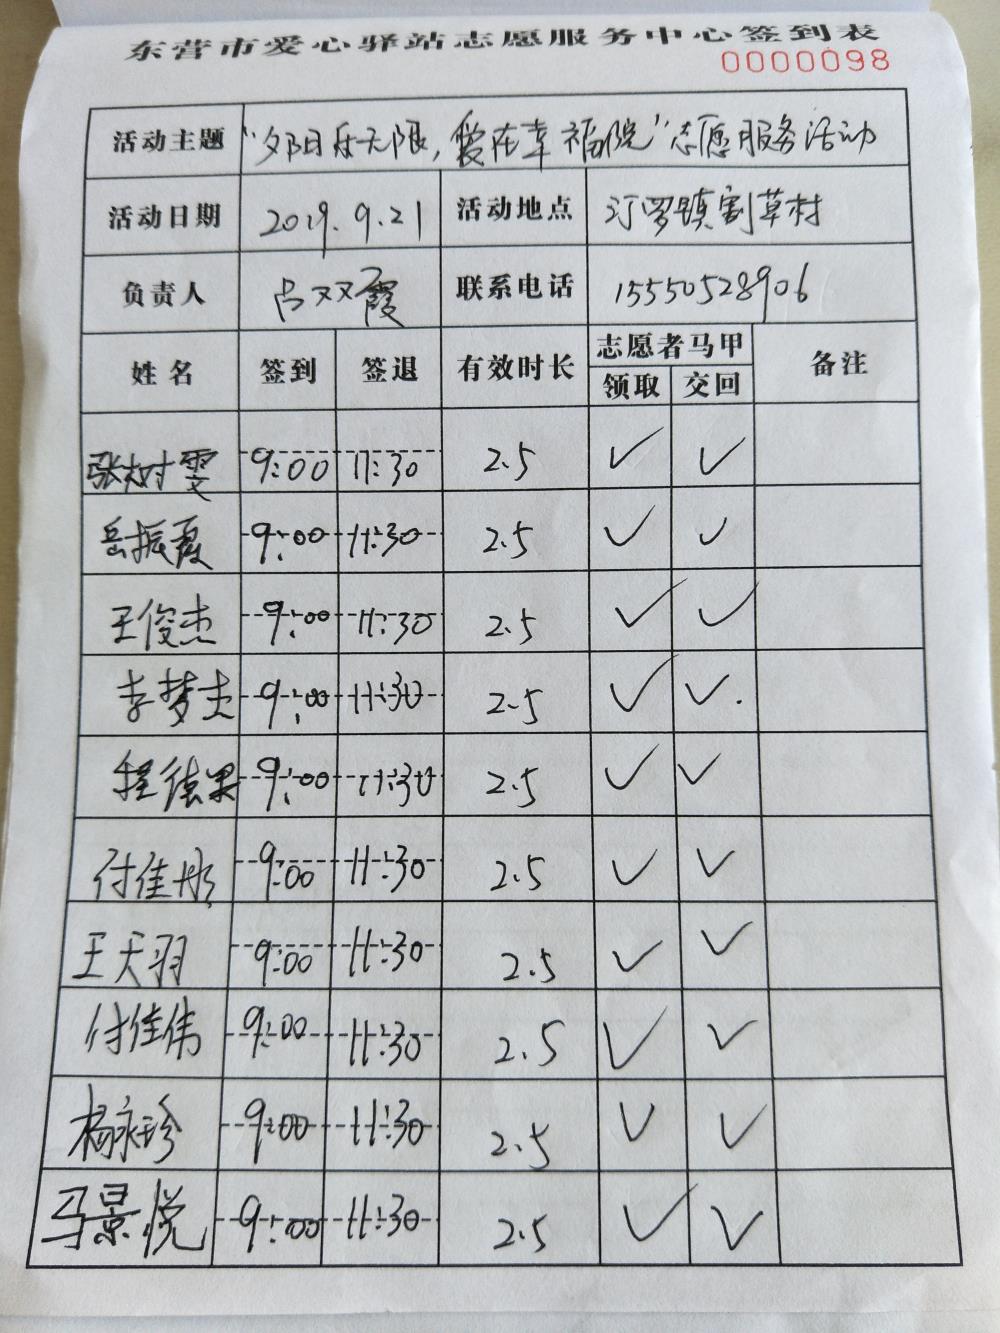 东营市爱心驿站志愿服务中心签到表
0000098
活动主题 "夕阳乐无限,爱在幸福院"志愿服务活动
活动日期 2019.9.21 活动地点 汀罗镇割草村
负责人 吕双双霞 联系电话 15550528906
姓名 签到 签退 有效时长 志愿者马甲 备注
领取 交回
张树雯 9:00 11:30 2.5 ✓ ✓
岳振夏 9:00 11:30 2.5 ✓ ✓
王俊杰 9:00 11:30 2.5 ✓ ✓
李梦杰 9:00 11:30 2.5 ✓ ✓
程德果 9:00 11:30 2.5 ✓ ✓
付佳彤 9:00 11:30 2.5 ✓ ✓
王天羽 9:00 11:30 2.5 ✓ ✓
付佳伟 9:00 11:30 2.5 ✓ ✓
杨永珍 9:00 11:30 2.5 ✓ ✓
马景悦 9:00 11:30 2.5 ✓ ✓